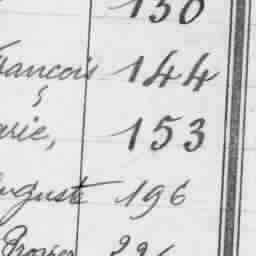 130
François 144
arie, 153
Auguste 196
Prosper 226